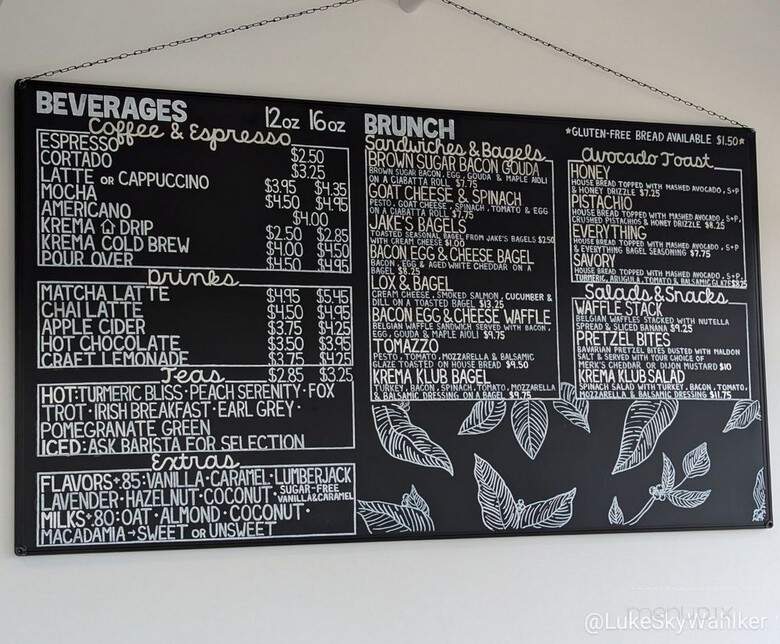 BEVERAGES 12oz 16oz
Coffee & Espresso
ESPRESSO $2.50
CORTADO $3.25
LATTE OR CAPPUCCINO $3.95 $4.35
MOCHA $4.50 $4.95
AMERICANO $4.00
KREMA DRIP $2.50 $2.85
KREMA COLD BREW $4.00 $4.50
POUR OVER $4.50 $4.95
Drinks
MATCHA LATTE $4.95 $5.45
CHAI LATTE $4.50 $4.95
APPLE CIDER $3.75 $4.25
HOT CHOCOLATE $3.50 $3.95
CRAFT LEMONADE $3.75 $4.25
Teas $2.85 $3.25
HOT: TURMERIC BLISS · PEACH SERENITY · FOX
TROT · IRISH BREAKFAST · EARL GREY ·
POMEGRANATE GREEN
ICED: ASK BARISTA FOR SELECTION
Extras
FLAVORS +.85: VANILLA · CARAMEL · LUMBERJACK
LAVENDER · HAZELNUT · COCONUT · SUGAR-FREE VANILLA & CARAMEL
MILKS +.80: OAT · ALMOND · COCONUT ·
MACADAMIA → SWEET OR UNSWEET
BRUNCH
Sandwiches & Bagels
BROWN SUGAR BACON GOUDA
BROWN SUGAR BACON, EGG, GOUDA & MAPLE AIOLI
ON A CIABATTA ROLL $7.75
GOAT CHEESE & SPINACH
PESTO, GOAT CHEESE, SPINACH, TOMATO & EGG
ON A CIABATTA ROLL $7.75
JAKE'S BAGELS
TOASTED SEASONAL BAGEL FROM JAKE'S BAGELS $2.50
WITH CREAM CHEESE $1.00
BACON EGG & CHEESE BAGEL
BACON, EGG & AGED WHITE CHEDDAR ON A
BAGEL $8.25
LOX & BAGEL
CREAM CHEESE, SMOKED SALMON, CUCUMBER &
DILL ON A TOASTED BAGEL $13.25
BACON EGG & CHEESE WAFFLE
BELGIAN WAFFLE SANDWICH SERVED WITH BACON,
EGG, GOUDA & MAPLE AIOLI $9.75
TOMAZZO
PESTO, TOMATO, MOZZARELLA & BALSAMIC
GLAZE TOASTED ON HOUSE BREAD $9.50
KREMA KLUB BAGEL
TURKEY, BACON, SPINACH, TOMATO, MOZZARELLA
& BALSAMIC DRESSING ON A BAGEL $9.75
*GLUTEN-FREE BREAD AVAILABLE $1.50*
Avocado Toast
HONEY
HOUSE BREAD TOPPED WITH MASHED AVOCADO, S+P
& HONEY DRIZZLE $7.25
PISTACHIO
HOUSE BREAD TOPPED WITH MASHED AVOCADO, S+P,
CRUSHED PISTACHIOS & HONEY DRIZZLE $8.25
EVERYTHING
HOUSE BREAD TOPPED WITH MASHED AVOCADO, S+P
& EVERYTHING BAGEL SEASONING $7.75
SAVORY
HOUSE BREAD TOPPED WITH MASHED AVOCADO, S+P,
TURMERIC, ARUGULA, TOMATO & BALSAMIC GLAZE $8.25
Salads & Snacks
WAFFLE STACK
BELGIAN WAFFLES STACKED WITH NUTELLA
SPREAD & SLICED BANANA $9.25
PRETZEL BITES
BAVARIAN PRETZEL BITES DUSTED WITH MALDON
SALT & SERVED WITH YOUR CHOICE OF
MERK'S CHEDDAR OR DIJON MUSTARD $10
KREMA KLUB SALAD
SPINACH SALAD WITH TURKEY, BACON, TOMATO,
MOZZARELLA & BALSAMIC DRESSING $11.75
@LukeSkyWahlker